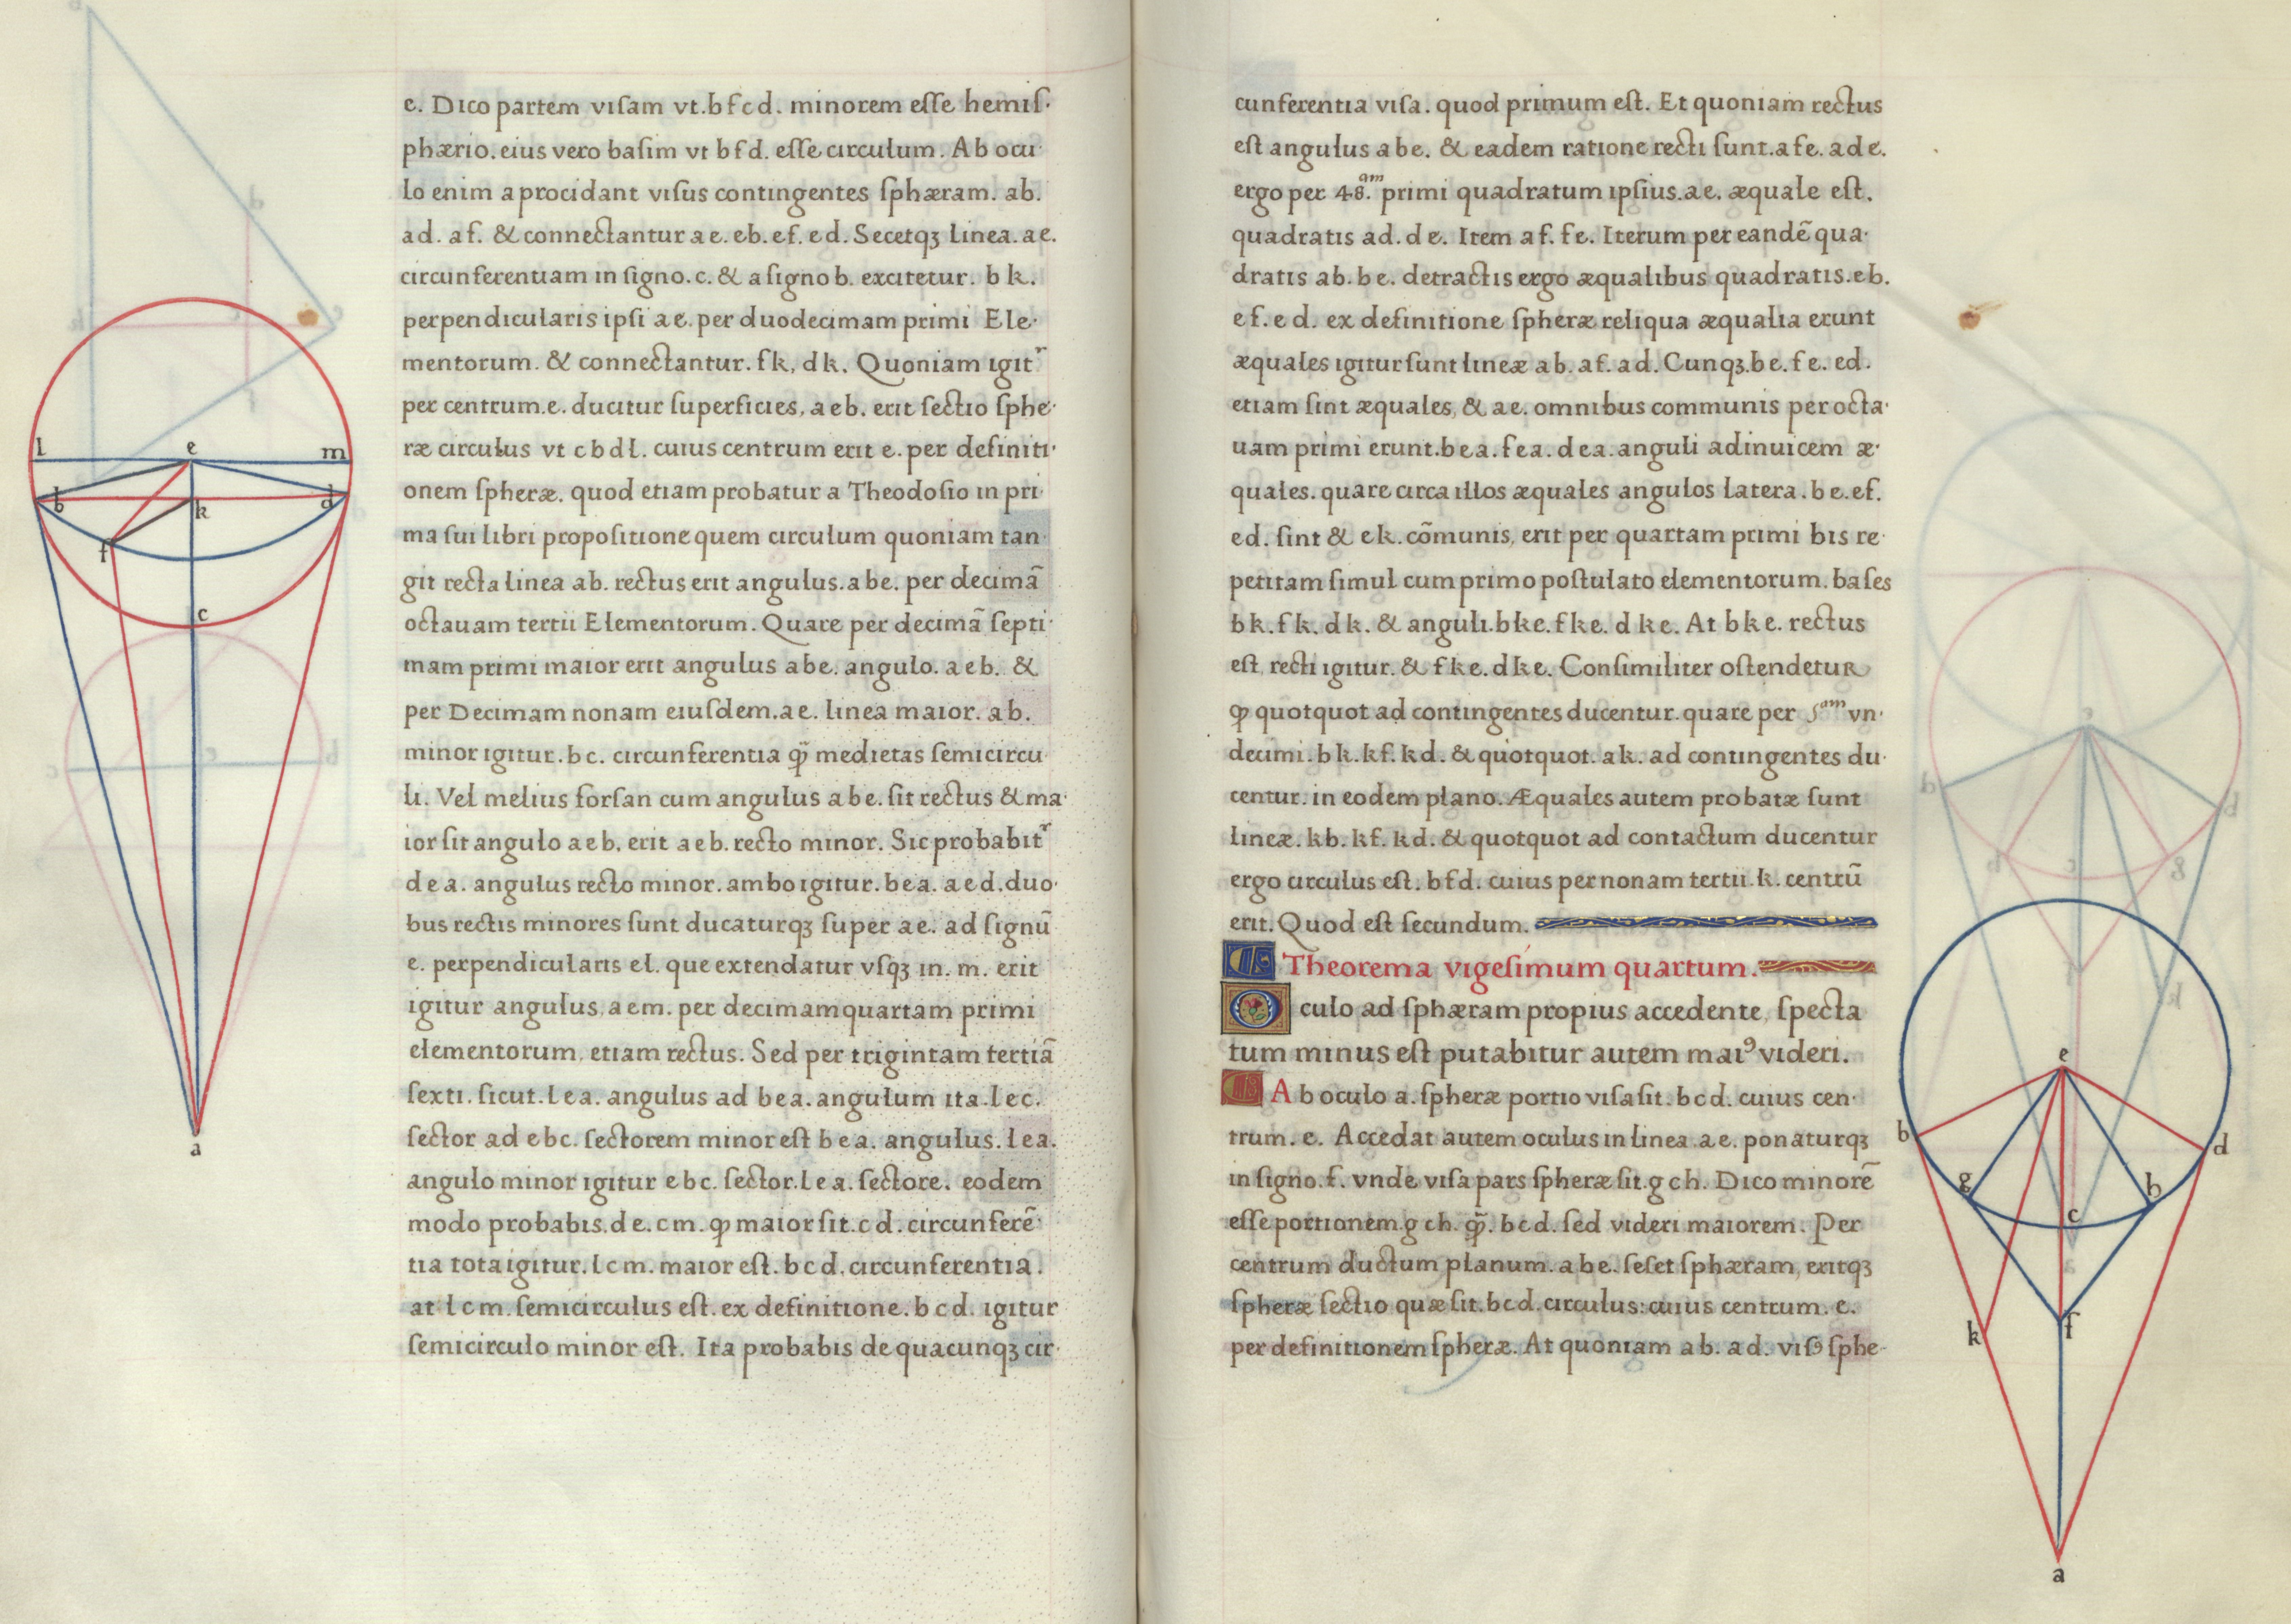 e. Dico partem viſam vt.b f c d. minorem eſſe hemiſ·
phærio. eius vero baſim vt b f d. eſſe circulum. Ab ocu·
lo enim a procidant viſus contingentes ſphæram. ab.
ad. af. & connectantur a e. eb. ef. ed. Secetqꝫ linea. ae.
circunferentiam in ſigno. c. & a ſigno b. excitetur. b k.
perpendicularis ipſi a e. per duodecimam primi Ele·
mentorum. & connectantur. f k, d k. Quoniam igitʳ
per centrum.e. ducitur ſuperficies, a e b. erit ſectio ſphe·
ræ circulus vt c b d l. cuius centrum erit e. per definiti·
onem ſpheræ. quod etiam probatur a Theodoſio in pri·
ma ſui libri propoſitione quem circulum quoniam tan·
git recta linea ab. rectus erit angulus. a b e. per decimã
octauam tertii Elementorum. Quare per decimã ſepti·
mam primi maior erit angulus abe. angulo. a e b. &
per Decimam nonam eiuſdem.a e. linea maior. a b.
minor igitur. b c. circunferentia ꝙ̃ medietas ſemicircu·
li. Vel melius forſan cum angulus a b e. ſit rectus & ma·
ior ſit angulo a e b. erit a e b. recto minor. Sic probabitʳ
d e a. angulus recto minor. ambo igitur. b e a. a e d. duo·
bus rectis minores ſunt ducaturqꝫ ſuper a e. ad ſignũ
e. perpendicularis el. que extendatur vſqꝫ in. m. erit
igitur angulus, a e m. per decimamquartam primi
elementorum. etiam rectus. Sed per trigintam tertiã
ſexti. ſicut. l e a. angulus ad b e a. angulum ita. l e c.
ſector ad e b c. ſectorem minor eſt b e a. angulus. l e a.
angulo minor igitur e b c. ſector. l e a. ſectore. eodem
modo probabis. d e. c m. ꝙ maior ſit. c d. circunferẽ·
tia tota igitur. l c m. maior eſt. b c d. circunferentia.
at l c m. ſemicirculus eſt. ex definitione. b c d. igitur
ſemicirculo minor eſt. Ita probabis de quacunqꝫ cir·
l
e
m
b
k
d
f
c
a
cunferentia viſa. quod primum eſt. Et quoniam rectus
eſt angulus a b e. & eadem ratione recti ſunt. a f e. a d e.
ergo per 48.ᵃᵐ primi quadratum ipſius. a e. æquale eſt.
quadratis ad. d e. Item a f. f e. Iterum per eandẽ qua·
dratis ab. b e. detractis ergo æqualibus quadratis. e b.
e f. e d. ex definitione ſpheræ reliqua æqualia erunt
æquales igitur ſunt lineæ a b. a f. a d. Cunqꝫ. b e. f e. ed.
etiam ſint æquales, & a e. omnibus communis per octa·
uam primi erunt. b e a. f e a. d e a. anguli adinuicem æ·
quales. quare circa illos æquales angulos latera. b e. ef.
e d. ſint & e k. cõmunis, erit per quartam primi bis re·
petitam ſimul cum primo poſtulato elementorum. baſes
b k. f k. d k. & anguli. b k e. f k e. d k e. At b k e. rectus
eſt, recti igitur. & f k e. d k e. Conſimiliter oſtendetur
ꝙ quotquot ad contingentes ducentur. quare per 5ᵃᵐ vn·
decimi. b k. k f. k d. & quotquot. a k. ad contingentes du·
centur. in eodem plano. Æquales autem probatæ ſunt
lineæ. kb. kf. kd. & quotquot ad contactum ducentur
ergo circulus eſt. b f d. cuius per nonam tertii. k. centrũ
erit. Quod eſt ſecundum.
Theorema vigeſimum quartum.
Oculo ad ſphæram propius accedente, ſpecta
tum minus eſt putabitur autem maiꝰ videri.
A b oculo a. ſpheræ portio viſa ſit. b c d. cuius cen·
trum. e. Accedat autem oculus in linea. a e. ponaturqꝫ
in ſigno. f. vnde viſa pars ſpheræ ſit. g c h. Dico minorẽ
eſſe portionem. g c h. ꝙ̃. b c d. ſed videri maiorem. Per
centrum ductum planum. a b e. ſeſet ſphæram, eritqꝫ
ſpheræ ſectio quæ ſit. b c d. circulus: cuius centrum. e.
per definitionem ſpheræ. At quoniam a b. a d. viſꝰ ſphe·
e
b
d
g
h
c
k
f
a